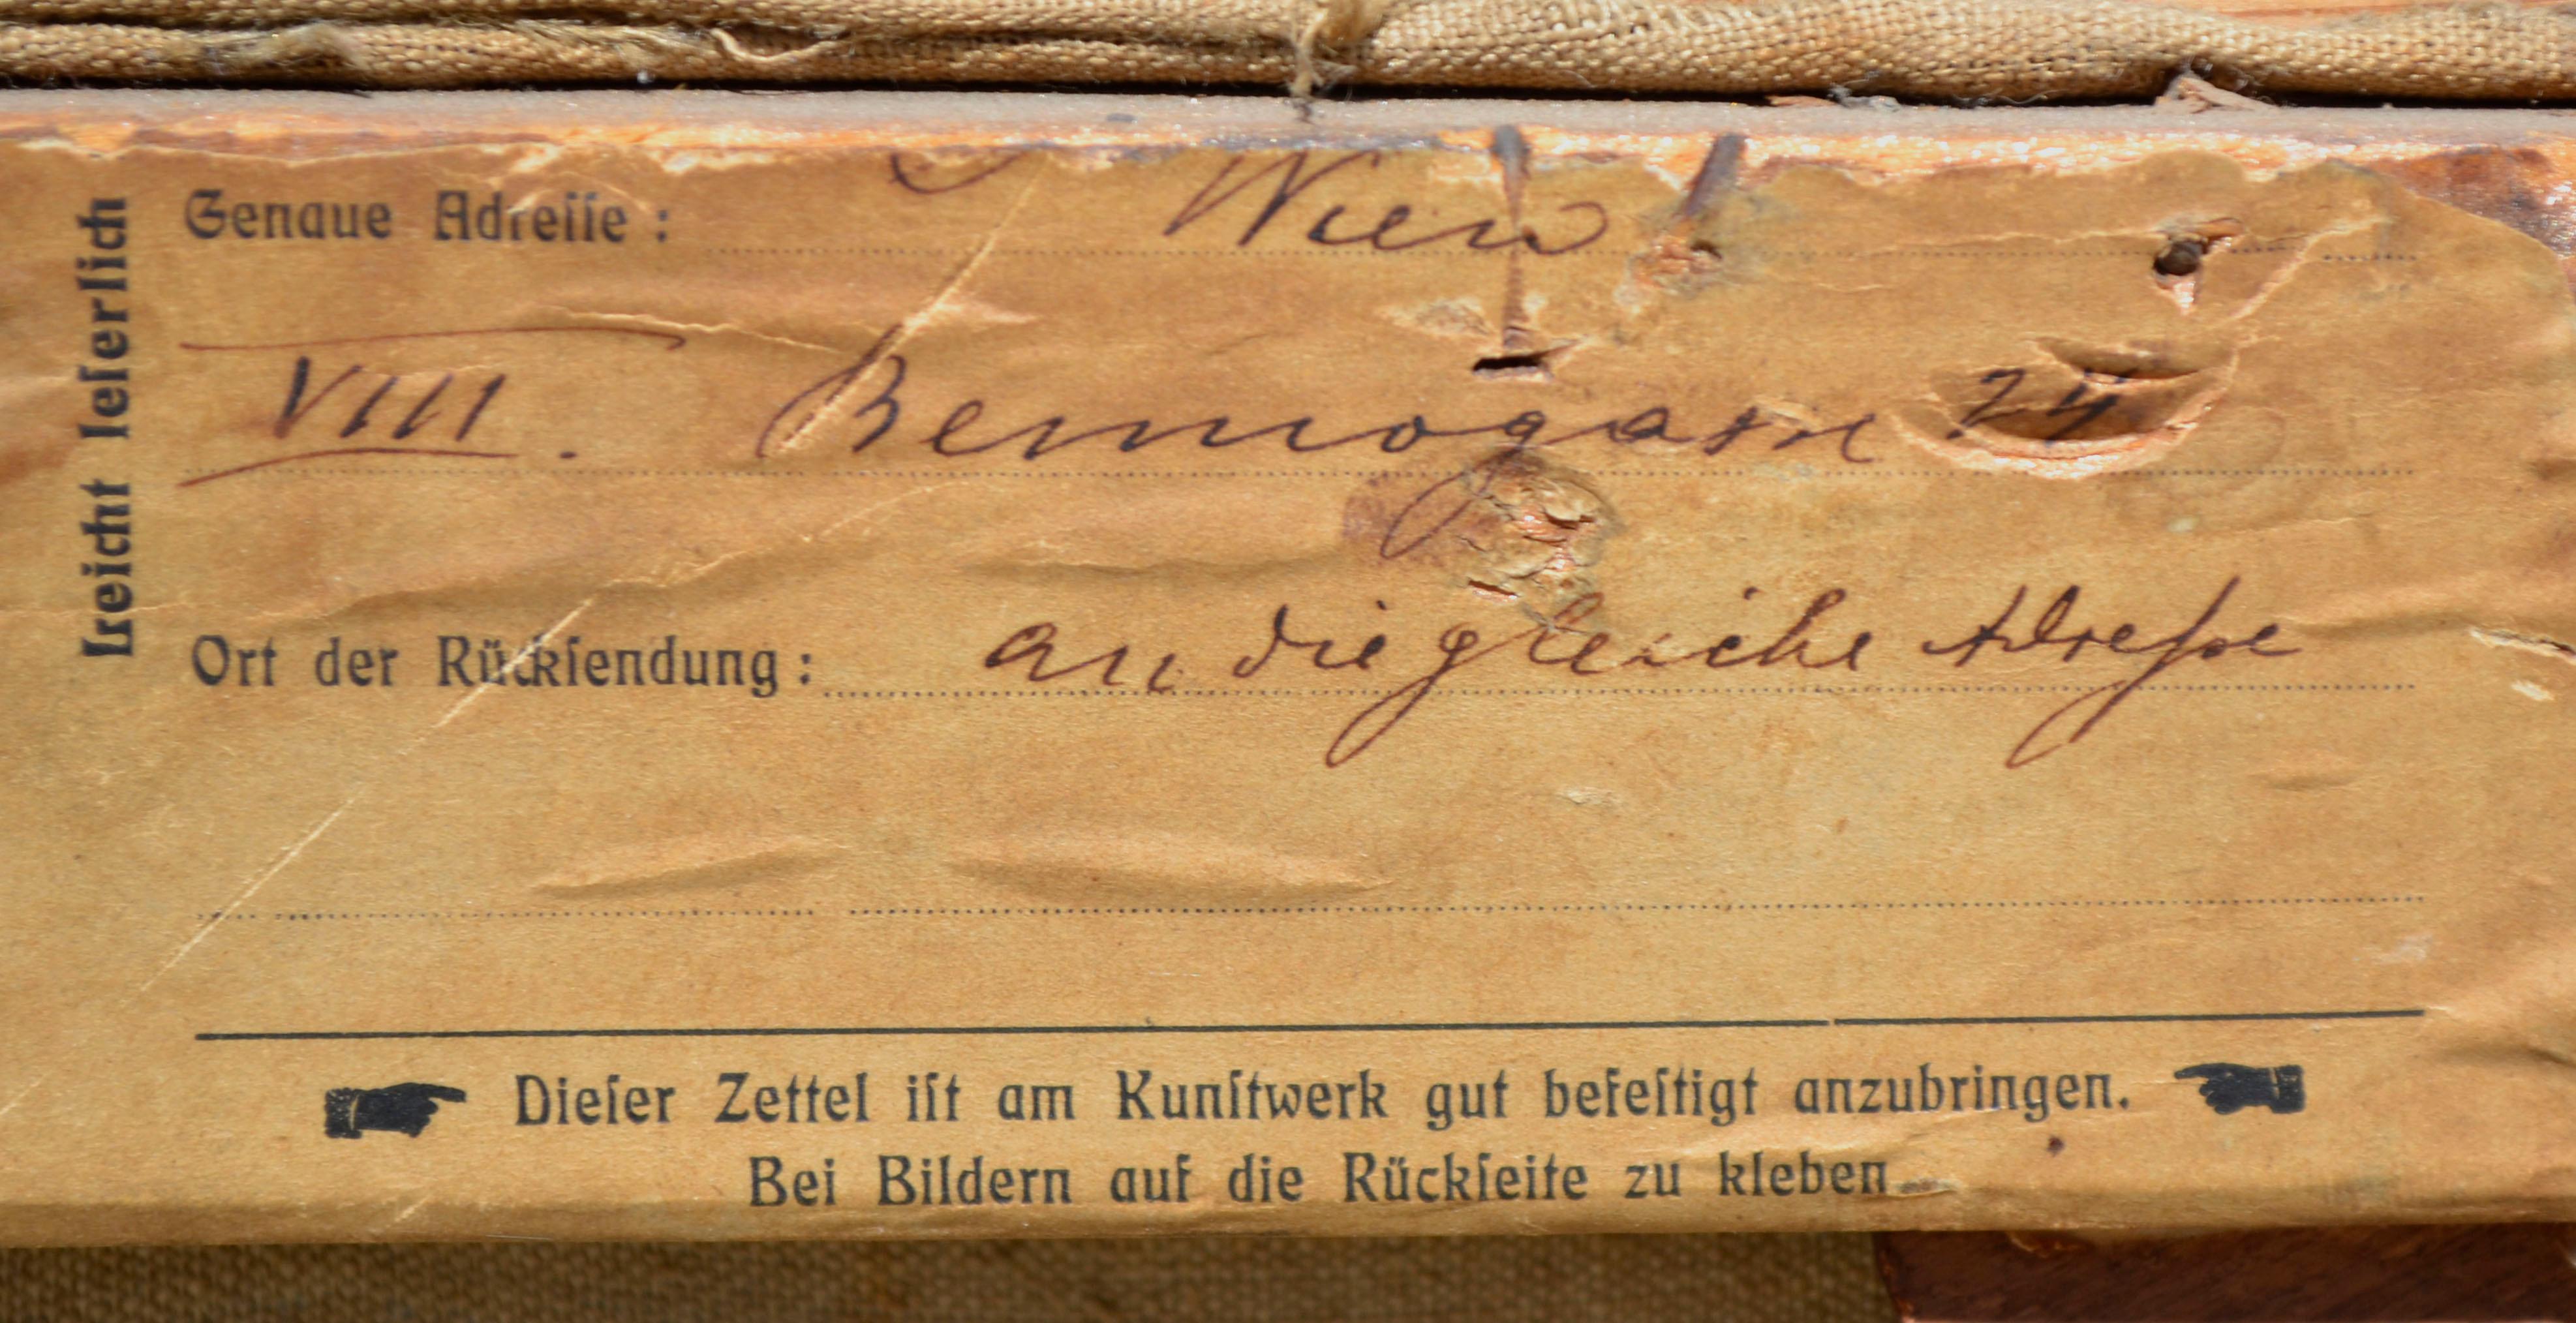 Genaue Adreſſe: Wien
VIII. Bennogasse 24
Ort der Rückſendung: an die gleiche Adreſse
Dieſer Zettel iſt am Kunſtwerk gut befeſtigt anzubringen.
Bei Bildern auf die Rückſeite zu kleben.
leicht leſerlich